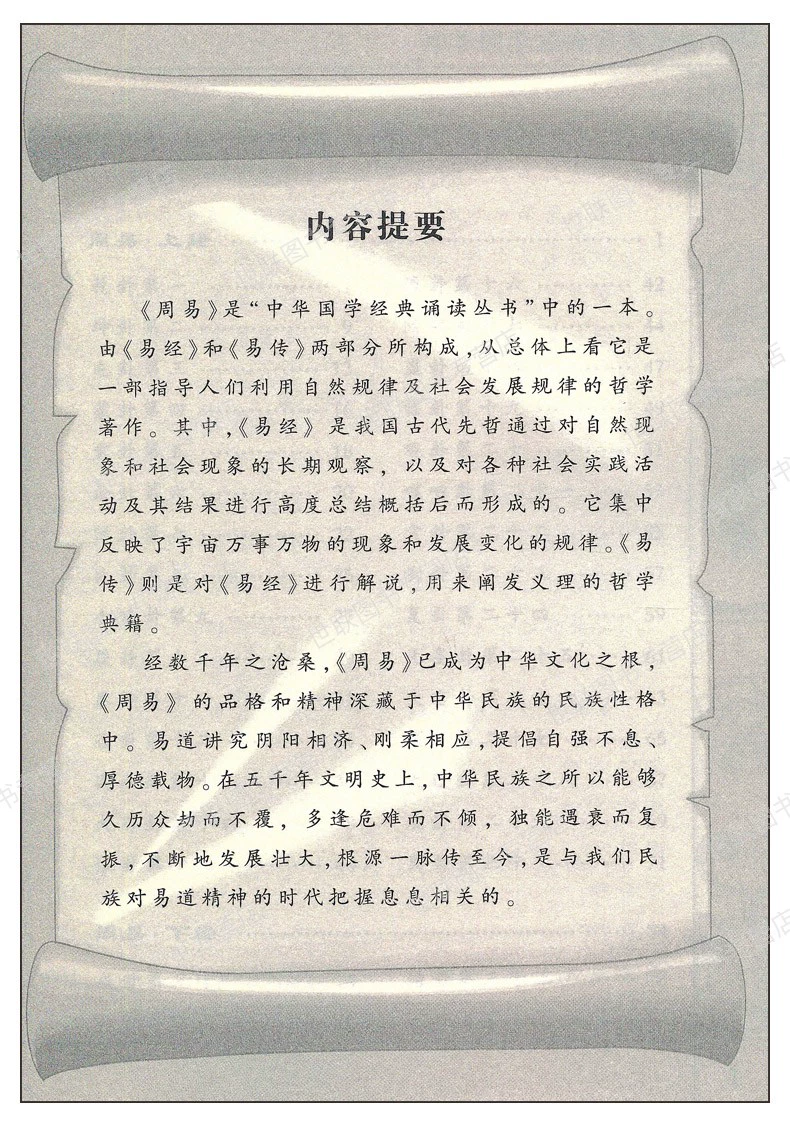 内容提要
《周易》是“中华国学经典诵读丛书”中的一本。
由《易经》和《易传》两部分所构成,从总体上看它是
一部指导人们利用自然规律及社会发展规律的哲学
著作。其中,《易经》是我国古代先哲通过对自然现
象和社会现象的长期观察，以及对各种社会实践活
动及其结果进行高度总结概括后而形成的。它集中
反映了宇宙万事万物的现象和发展变化的规律。《易
传》则是对《易经》进行解说,用来阐发义理的哲学
典籍。
经数千年之沧桑,《周易》已成为中华文化之根,
《周易》的品格和精神深藏于中华民族的民族性格
中。易道讲究阴阳相济、刚柔相应,提倡自强不息、
厚德载物。在五千年文明史上,中华民族之所以能够
久历众劫而不覆，多逢危难而不倾，独能遇衰而复
振,不断地发展壮大,根源一脉传至今,是与我们民
族对易道精神的时代把握息息相关的。